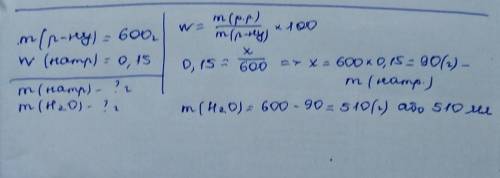 m(р-ну) = 600г
w(натр) = 0,15
m(натр) - ?г
m(H₂O) - ?г
w = m(р.р) / m(р-ну) × 100
0,15 = x / 600 => x = 600 × 0,15 = 90(г) -
m(натр.)
m(H₂O) = 600 - 90 = 510(г) або 510 мл